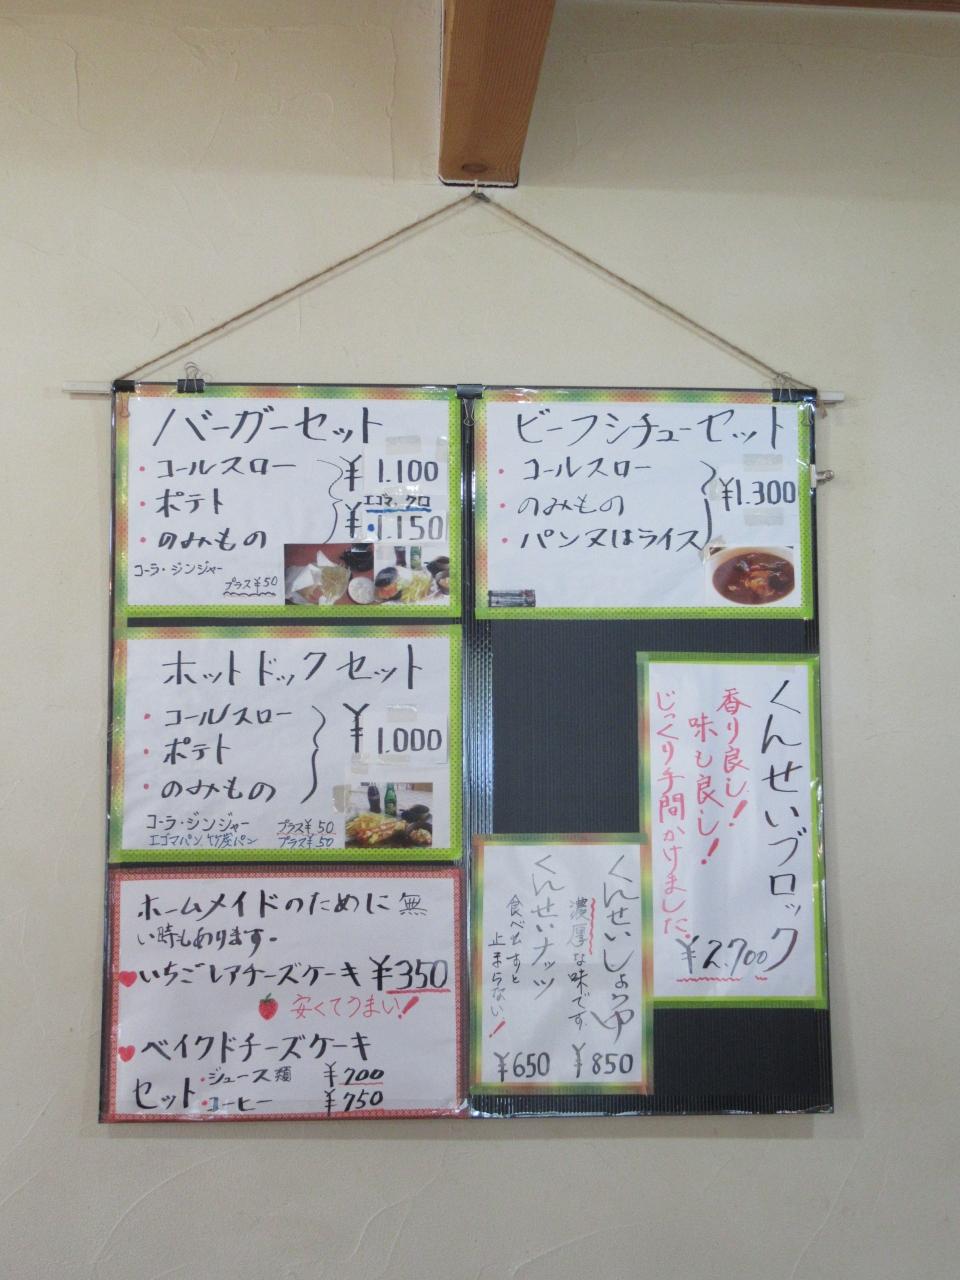 バーガーセット
・コールスロー
・ポテト
・のみもの
¥1.100
エゴマ、クロ
¥1.150
コーラ・ジンジャー
プラス¥50
ビーフシチューセット
・コールスロー
・のみもの
・パン又はライス
¥1.300
ホットドックセット
・コールスロー
・ポテト
・のみもの
¥1.000
コーラ・ジンジャー プラス¥50
エゴマパン 竹炭パン プラス¥50
くんせいブロック
香り良し!
味も良し!
じっくり手間かけました。
¥2.700
くんせいしょうゆ
濃厚な味です
¥850
くんせいナッツ
食べ出すと
止まらない!
¥650
ホームメイドのために無
い時もあります。
いちごレアチーズケーキ ¥350
安くてうまい!
ベイクドチーズケーキ
セット・ジュース類 ¥700
・コーヒー ¥750